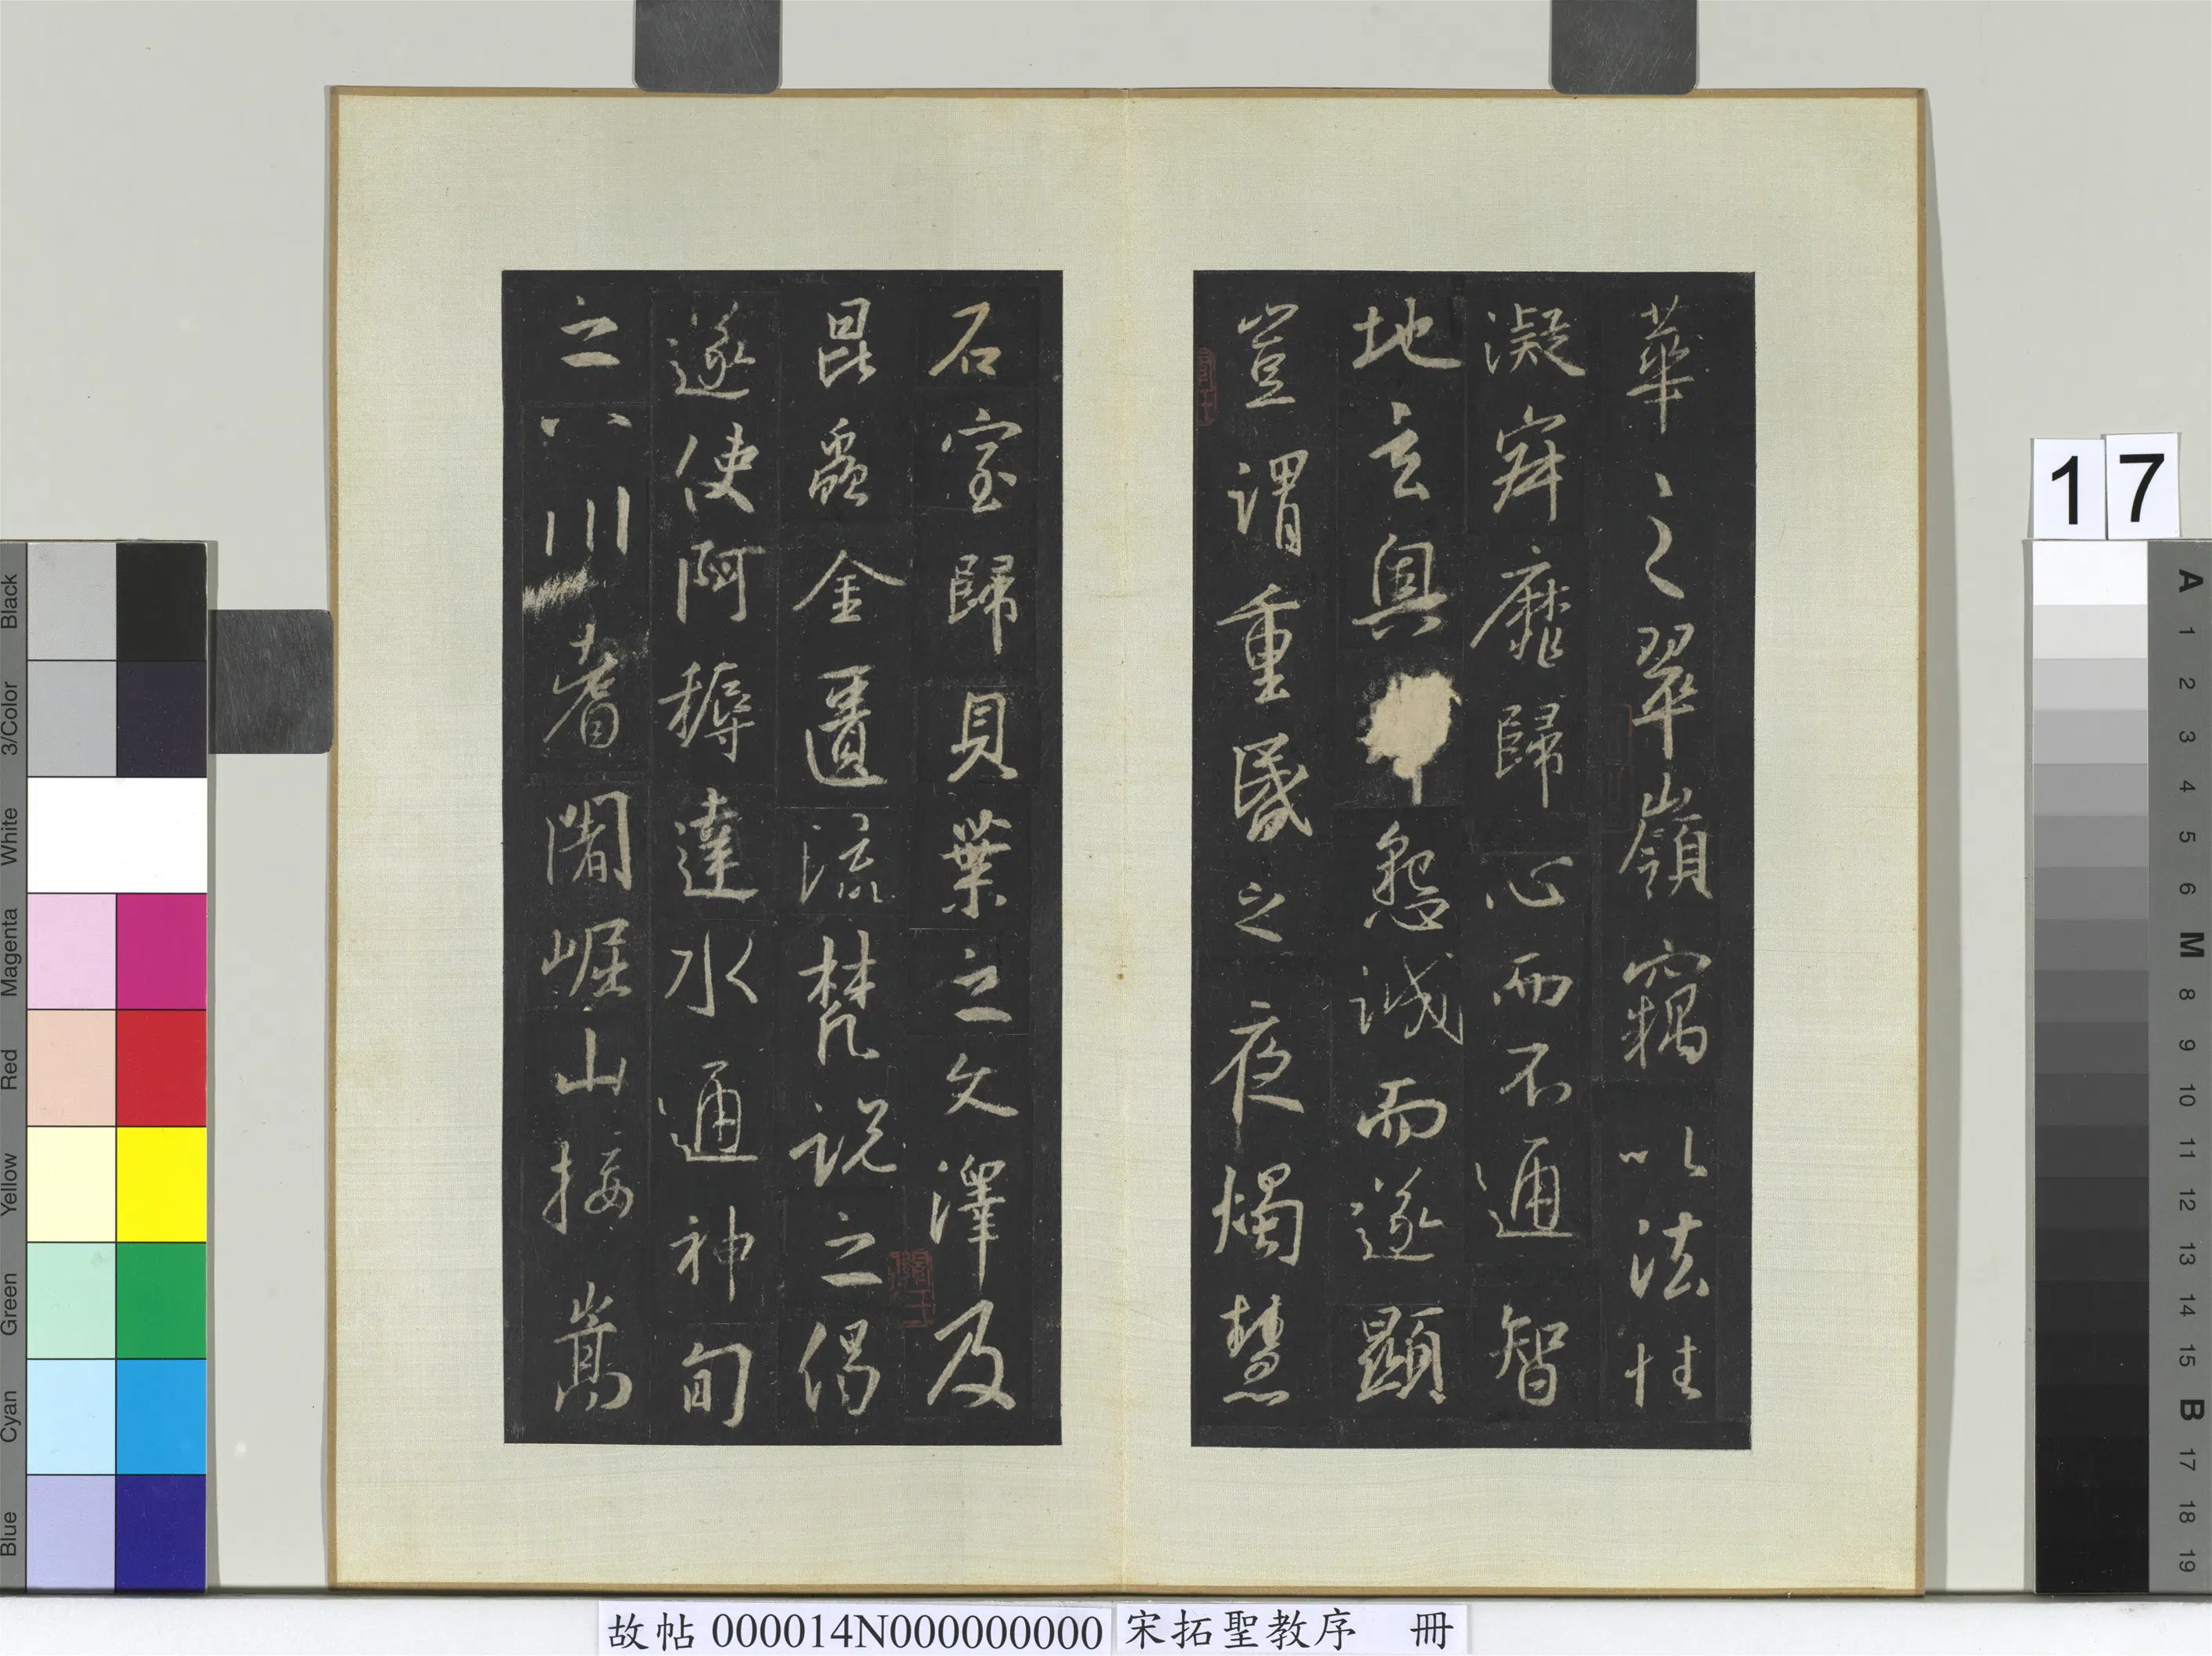 華之翠嶺竊以法性
凝寂靡歸心而不通智
地玄奧懇誠而遂顯
豈謂重昏之夜燭慧
石室歸貝葉之文澤及
昆蟲金匱流梵說之偈
遂使阿耨達水通神甸
之八川耆闍崛山接嵩
17
故帖 000014N000000000 宋拓聖教序 冊
Black
3/Color
White
Magenta
Red
Yellow
Green
Cyan
Blue
A
1
2
3
4
5
6
M
8
9
10
11
12
13
14
15
B
17
18
19